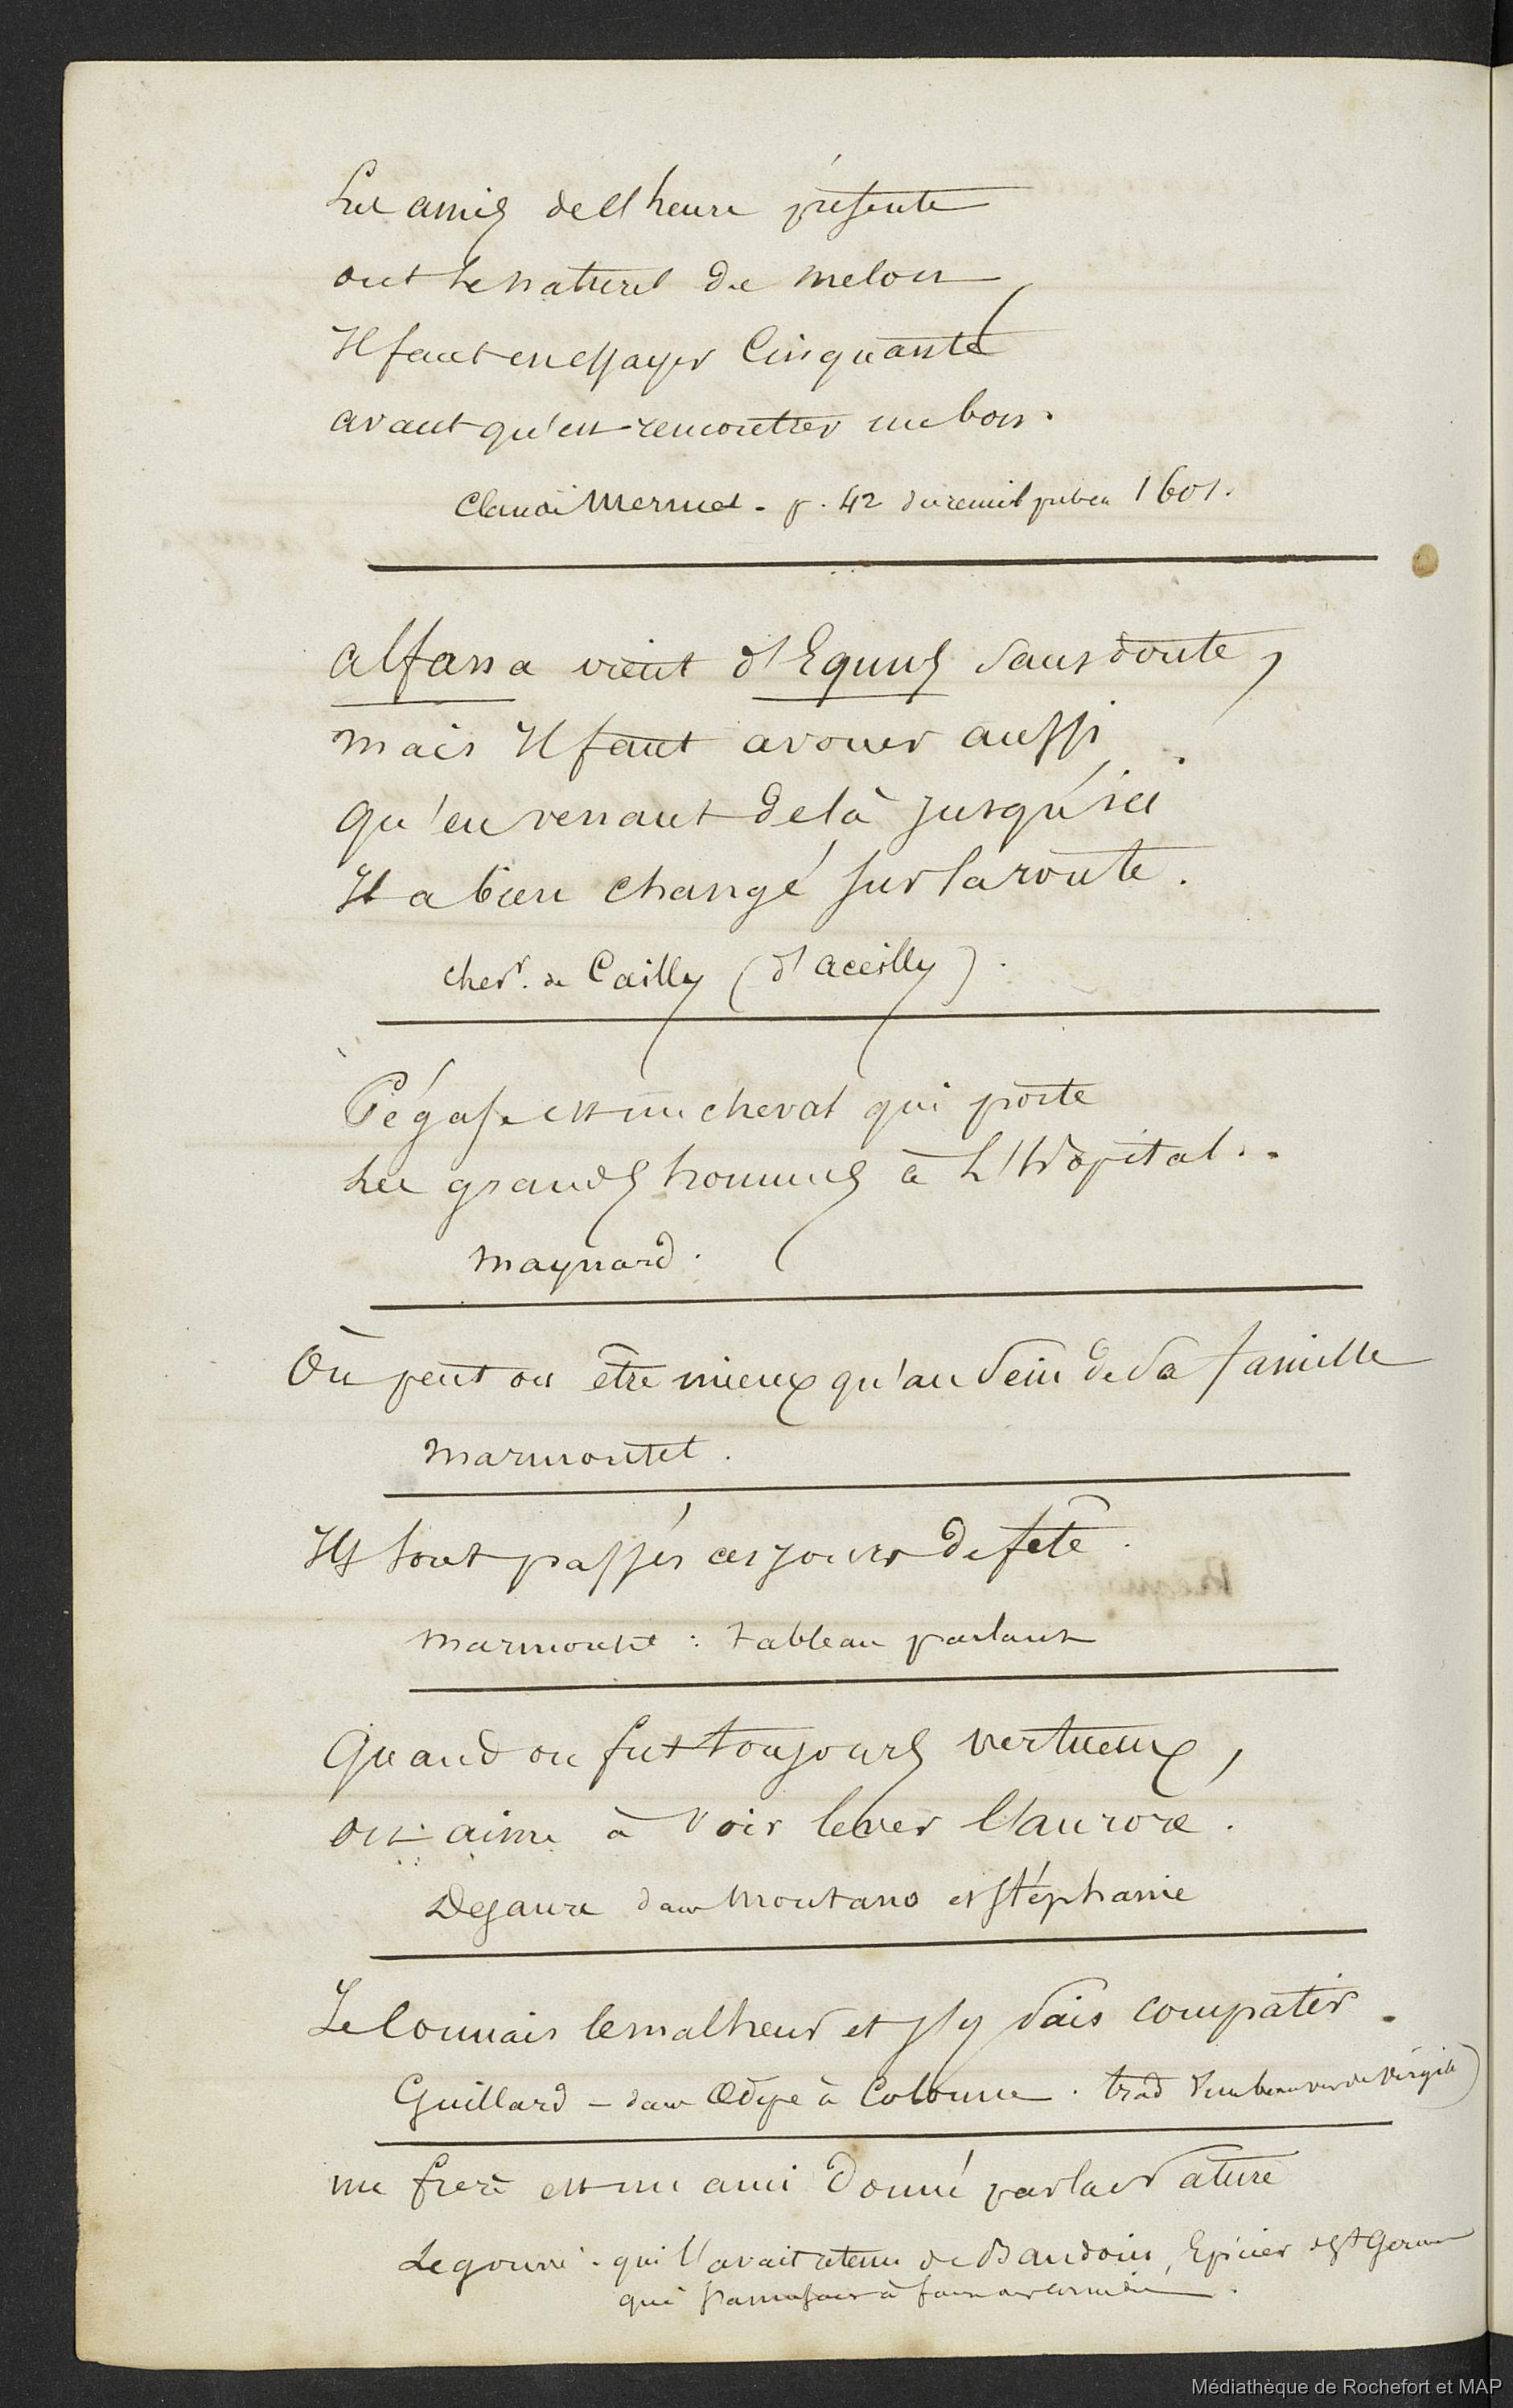 Les amis de l'heure présente
ont le naturel du melon
Il faut en essayer Cinquante
avant qu'en rencontrer un bon.
Claude Mermet. p. 42 du recueil pub en 1601.
alfana vient d'Equus sans doute,
mais Il faut avouer aussi
qu'en venant delà jusqu'ici
Il a bien changé sur la route.
chevr. de Cailly (d'aceilly).
Pégase est un cheval qui porte
Les grands hommes à L'Hôpital..
maynard.
Où peut on être mieux qu'au sein de sa famille
marmontel.
Ils sont passés ces jours de fête.
marmontel : tableau parlant
Quand on fut toujours vertueux,
on aime à voir lever l'aurore.
Dejaure dans montano et stéphanie
Je connais le malheur et j'y sais compatir.
Guillard - dans Œdipe à Colonne. trad d'un beau vers de virgile)
un frere est un ami donné par la nature
Legouvé. qui l'avait retenu de Baudoin, Epicier à St Germain
qui s'amusait à faire
Médiathèque de Rochefort et MAP